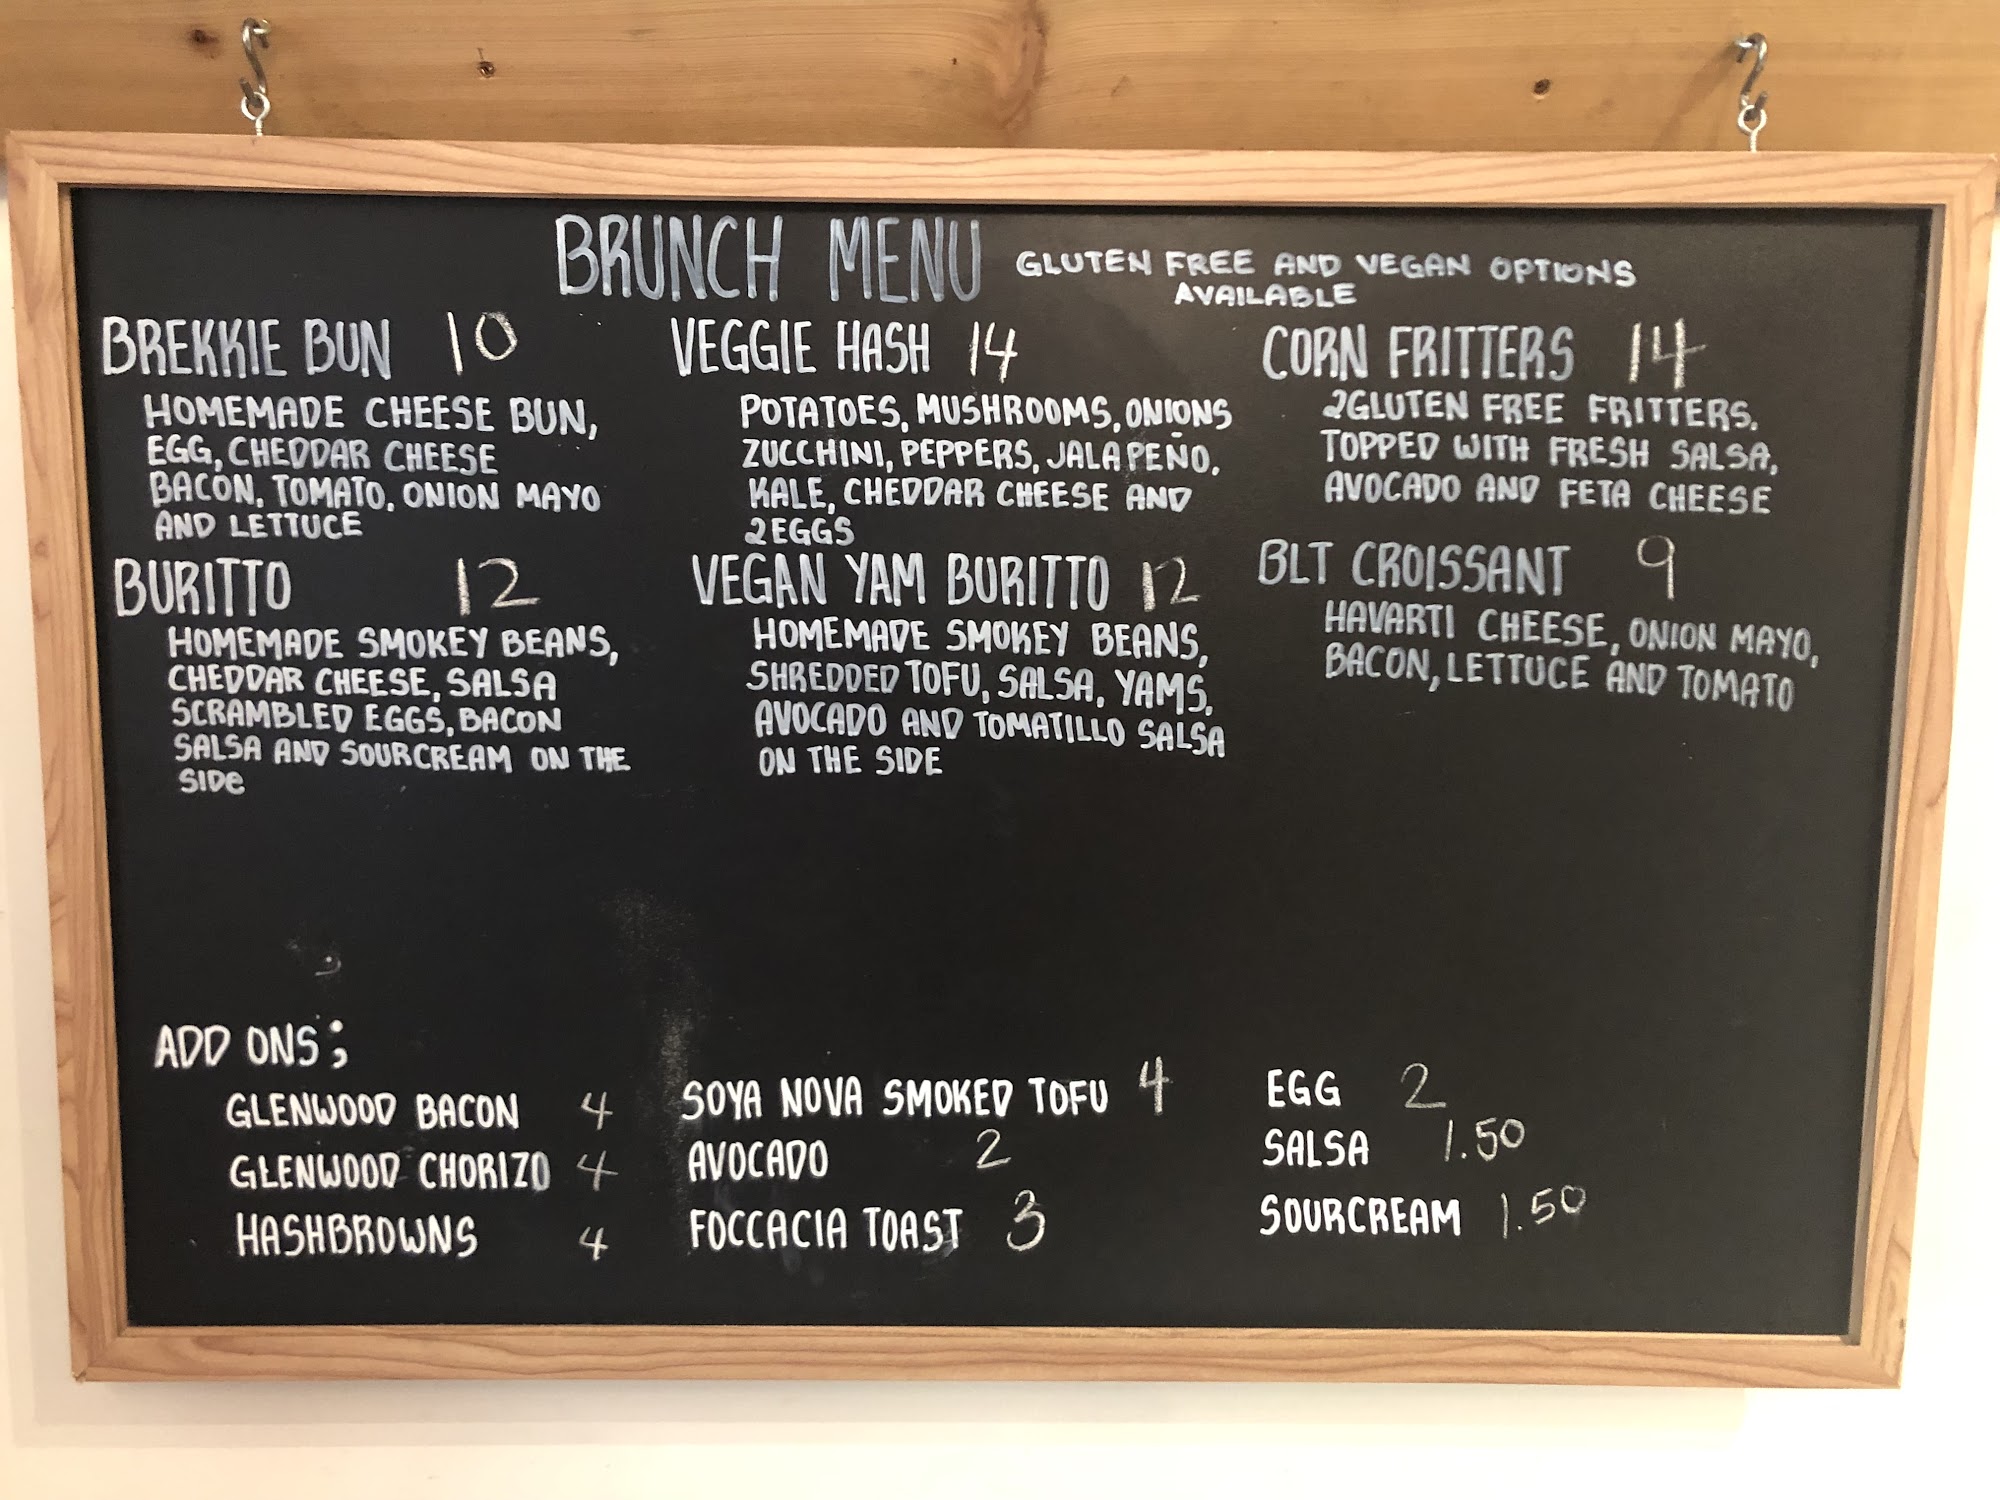 BRUNCH MENU GLUTEN FREE AND VEGAN OPTIONS
AVAILABLE
BREKKIE BUN 10
HOMEMADE CHEESE BUN,
EGG, CHEDDAR CHEESE
BACON, TOMATO, ONION MAYO
AND LETTUCE
BURITTO 12
HOMEMADE SMOKEY BEANS,
CHEDDAR CHEESE, SALSA
SCRAMBLED EGGS, BACON
SALSA AND SOURCREAM ON THE
SIDe
VEGGIE HASH 14
POTATOES, MUSHROOMS, ONIONS
ZUCCHINI, PEPPERS, JALAPEÑO,
KALE, CHEDDAR CHEESE AND
2EGGS
VEGAN YAM BURITTO 12
HOMEMADE SMOKEY BEANS,
SHREDDED TOFU, SALSA, YAMS,
AVOCADO AND TOMATILLO SALSA
ON THE SIDE
CORN FRITTERS 14
2GLUTEN FREE FRITTERS.
TOPPED WITH FRESH SALSA,
AVOCADO AND FETA CHEESE
BLT CROISSANT 9
HAVARTI CHEESE, ONION MAYO,
BACON, LETTUCE AND TOMATO
ADD ONS;
GLENWOOD BACON 4
GLENWOOD CHORIZO 4
HASHBROWNS 4
SOYA NOVA SMOKED TOFU 4
AVOCADO 2
FOCCACIA TOAST 3
EGG 2
SALSA 1.50
SOURCREAM 1.50